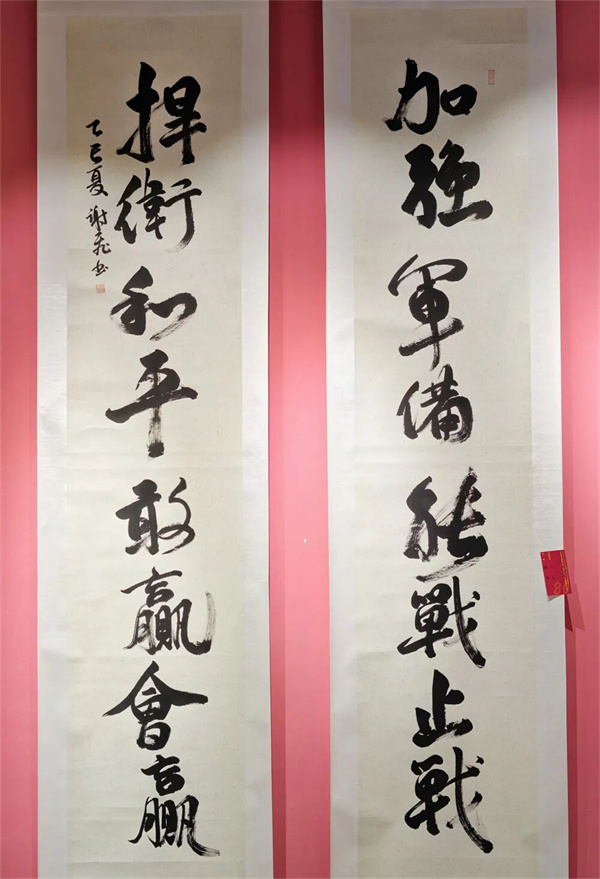 加強軍備能戰止戰
捍衛和平敢贏會贏
乙巳夏謝飛书